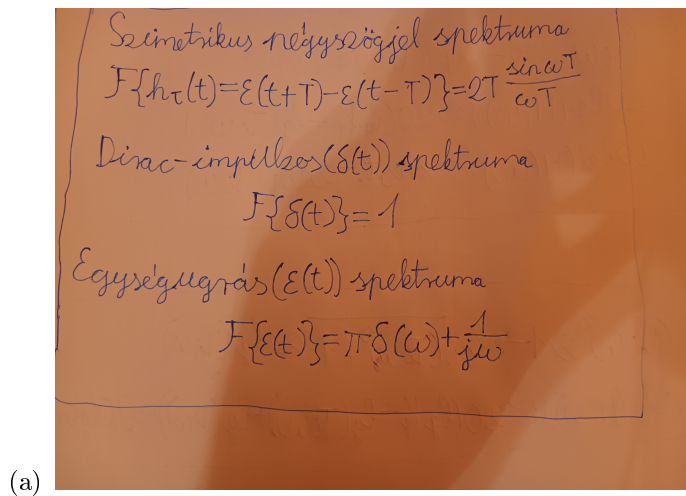 Szimetrikus négyszögjel spektruma
F{h_τ(t)=ε(t+T)-ε(t-T)}=2T sinωT/ωT
Dirac-impulzos(δ(t)) spektruma
F{δ(t)}= 1
Egységugrás(ε(t)) spektruma
F{ε(t)}=πδ(ω)+1/jω
(a)